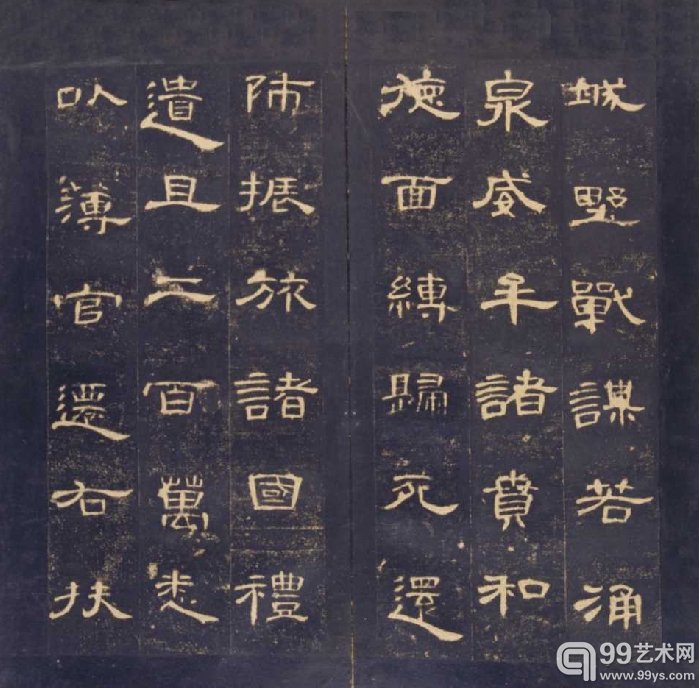 城野戰謀若涌
泉威牟諸賁和
德面縛歸死還
師振旅諸國禮
遺且二百萬悉
以薄官遷右扶
99艺术网
www.99ys.com